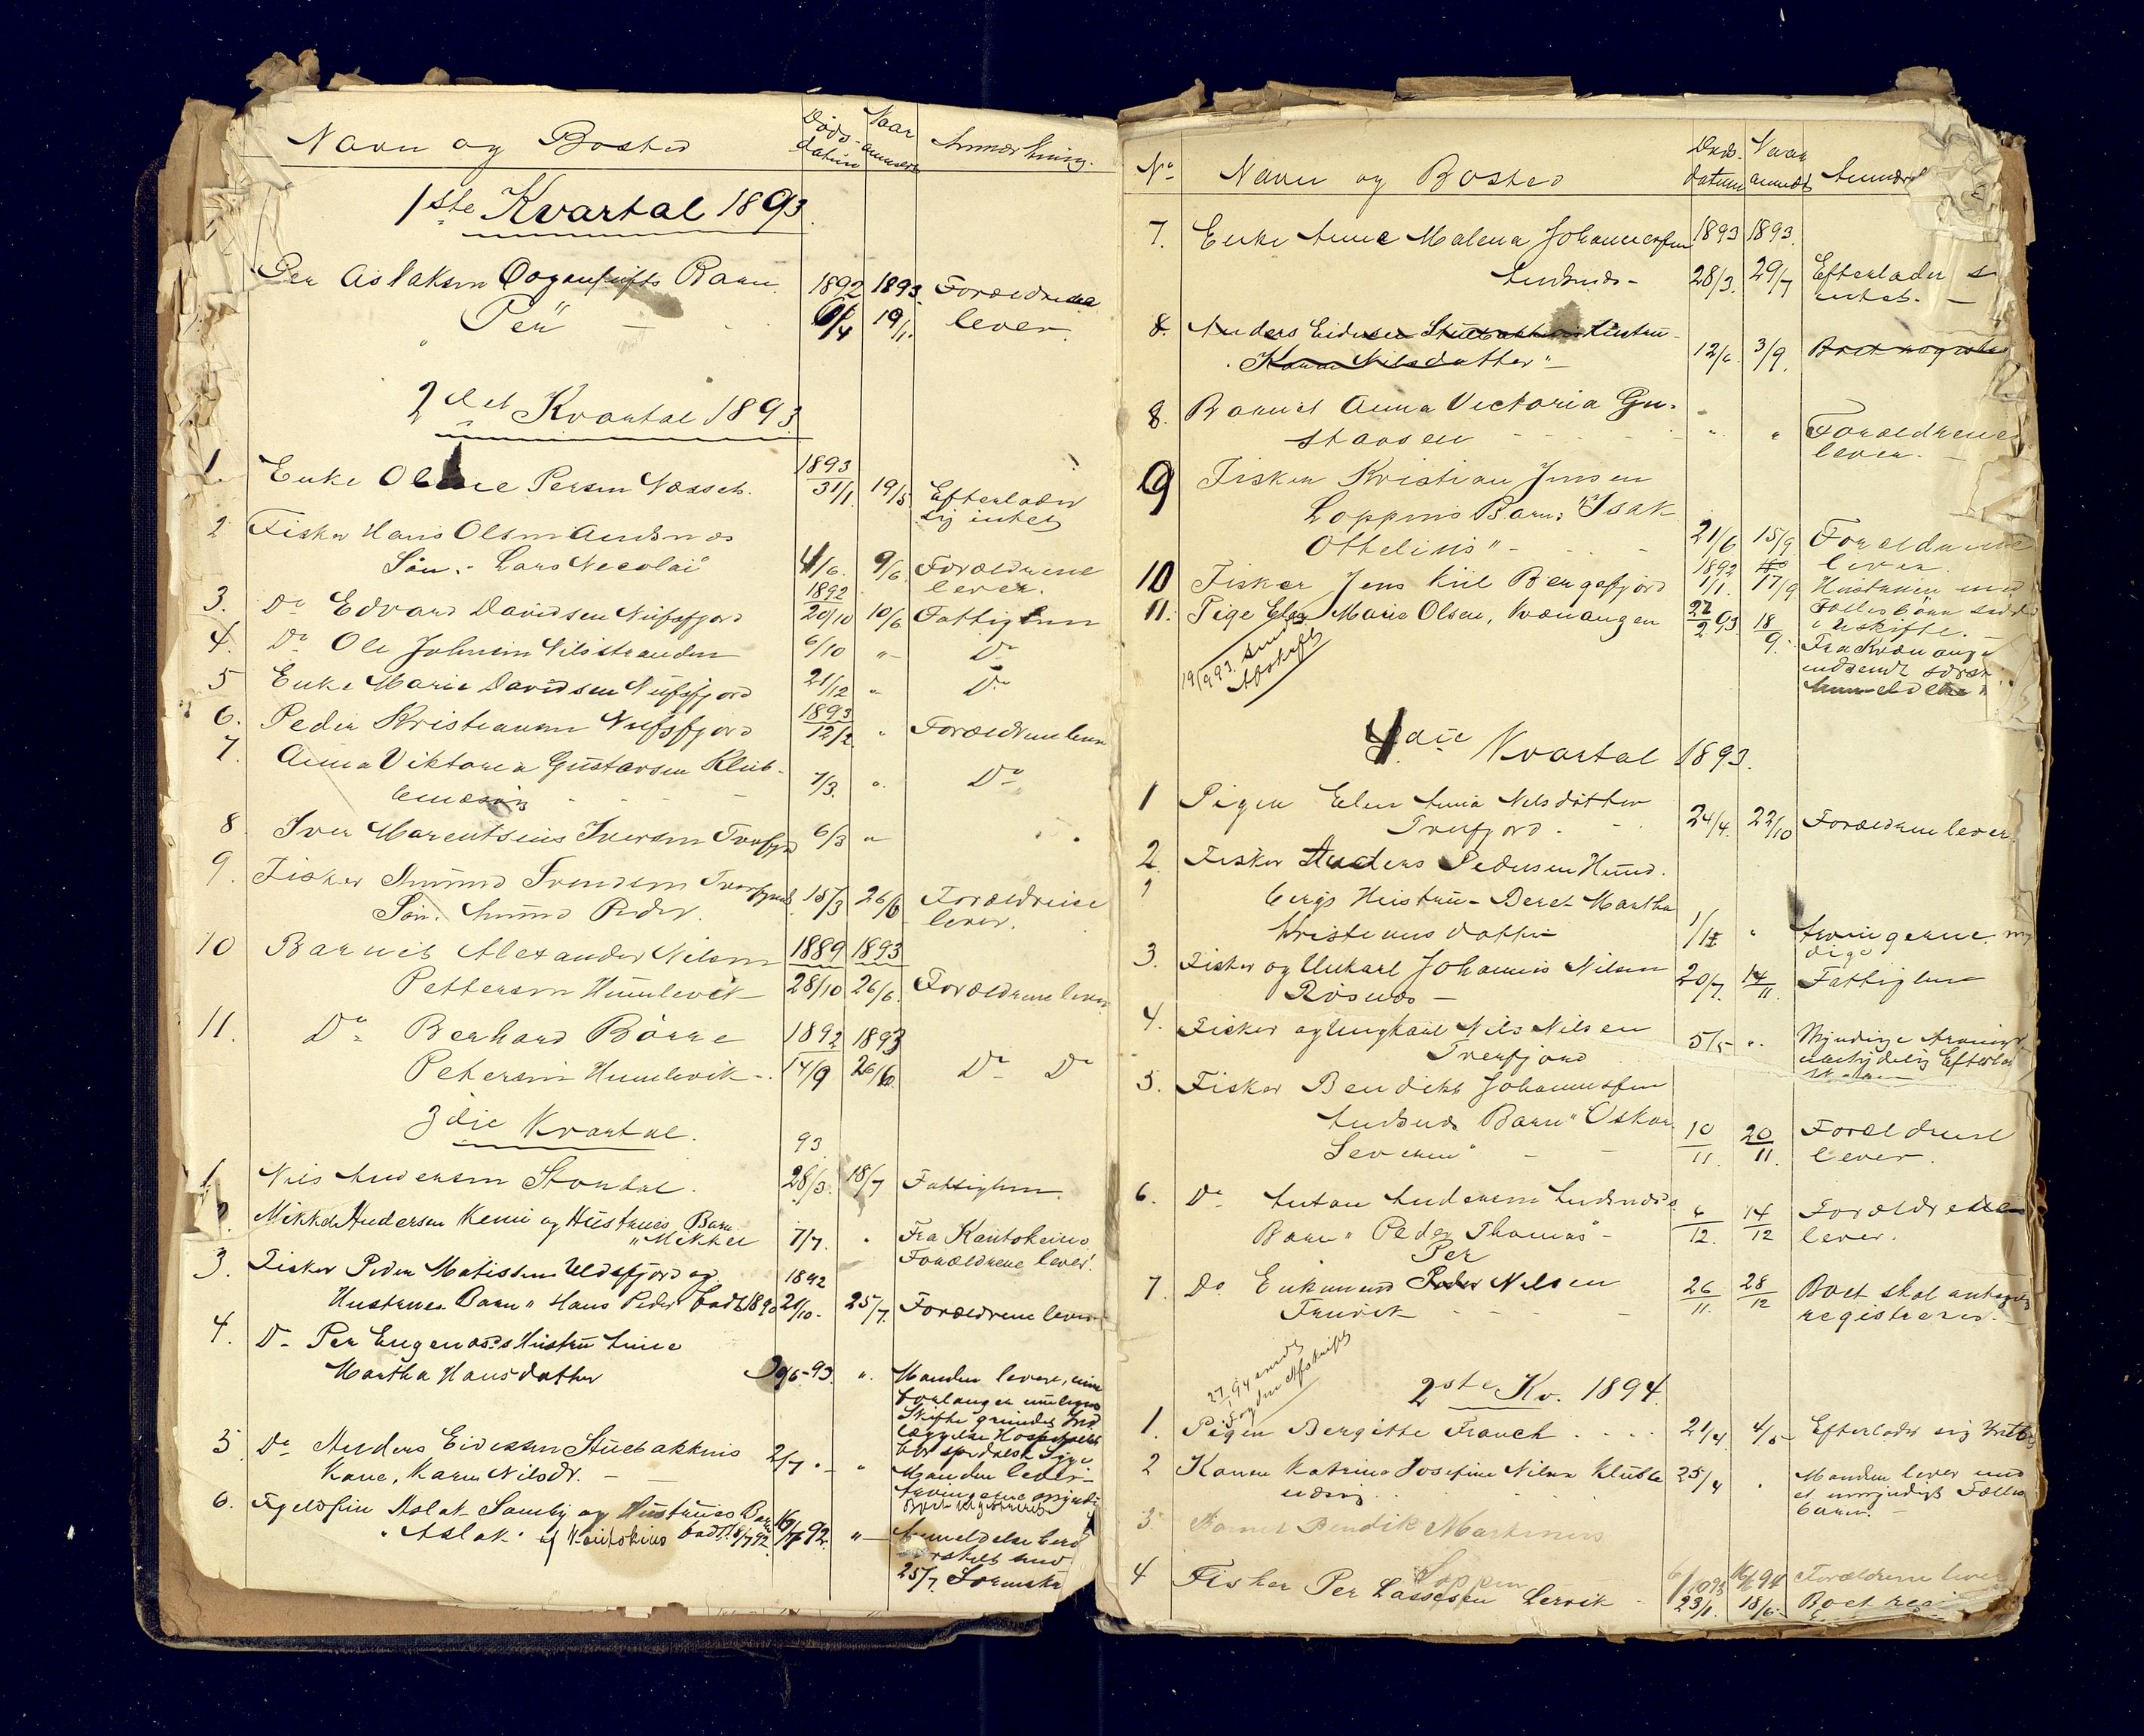 Navn og Bosted Døds- datum Naar anmeldt Anmærkning.
1ste Kvartal 1893
Per Aslaksen Barn 1892 1893. Forældrene
"Per" 6/4 19/1. lever.
2det Kvartal 1893
1. Enke Persen Næsset. 1893 31/1. 19/5 Efterlader
sig intet
2 Fisker Hans Olsen Andsnæs
Søn: Lars Necolai" 4/6. 9/6. Forældrene
lever.
3. Do Edvard Davidsen Nufsfjord 1892 20/10 10/6 Fattiglem
4. Do Ole Johnsen Nilsstranden 6/10 " Do
5 Enke Marie Davidsen Nufsfjord 21/12 " Do
6. Peder Kristiansen Nufsfjord 1893 12/2 " Forældrene lever
7. Anna Viktoria Gustavsen Klub-
7/3. " Do
8 Iver Marentsius Iversen Tverfjord 6/3 "
9. Fisker Amund Svendsen Tverfjord
Søn. Amund Peder. 15/3 26/6 Forældrene
lever.
10 Barnet Alexander Nilsen 1889 1893
Pettersen Humlevik 28/10 26/6. Forældrene lever
11. Do Berhard Børre 1892 1893
Petersen Humlevik 14/9 26/6. Do Do
3die Kvartal. 93
1. Nils Andersen Stordal. 28/3. 18/7 Fattiglem.
2. Mikkel Andersen Kemi og Hustrues Barn
"Mikkel 7/7. " Fra Kautokeino
Forældrene lever!
3. Fisker Peder Matissen Uldsfjord og 1892
Hustrues Barn "Hans Peder født 1890 21/10. 25/7. Forældrene lever
4. Do Per Hustru Anne
Martha Hansdatter 30/6-93. " Manden lever,
forlanger
Skifte grundet Ind
læggelse Hospitalet
for spedalsk Syge.
5 Do Anders Eidesen Stuebakknis 2/7 " Manden lever
Kone, Karen Nilsdr. Arvingerne myndi
Boet registreret
6. Fjeldfin Aslak Somby og Hustrues Barn 16/7 92. " Anmeldelse
"Aslak" af Kautokeino født 18/7 92. særskilt send
25/7.
No Navn og Bosted Døds- datum Naar anmeldt
7. Enke Anne Malena Johannessen 1893 1893.
Andsnæs - 28/3. 29/7 Efterlader s
intet. -
8. Anders Eidesen Stuebakknis Hustru
"Karen Nilsdatter" 12/6. 3/9.
8. Barnet Anna Victoria Gu-
stavsen " " Forældrene
lever. -
9 Fisker Kristian Jensen
Loppens Barn: "Isak
Othelius" - 21/6 15/9 Forældrene
lever.
10 Fisker Jens Kiil Bergsfjord 1892 1/1 17/9 Hustruen med
Fællesbørn sidde
i Uskifte. -
11. Pige Elen Marie Olsen, Kvænangen 27/2 93 18/9. Fra Kvænange
indsendt særsk.
Anmeldelse
19/9 93. sendt
Afskrift
4de Kvartal 1893.
1 Pigen Elen Anna Nilsdatter
Tverfjord. 24/4. 22/10 Forældrene lever
2 Fisker Anders Pedersen Hund-
bergs Hustru - Beret Martha
Kristensdatter " Arvingerne my
dige
3. Fisker og Ungkarl Johannes Nilsen 20/7. 14/11. Fattiglem
Rösnæs -
4. Fisker og Ungkarl Nils Nilsen 5/5 " Myndige Arvinger
Tverfjord
5. Fisker Bendikt Johannessen
Andsnæs Barn "Oskar 10/11. 20/11. Forældrene
Severin" lever.
6. Do Anton Andersen Andsnæs's 6/12. 14/12 Forældrene
Barn "Peder Thomas" - lever.
7. Do Enkemand Per Nilsen 26/11. 28/12 Boet skal
Fruvik registreres. -
27/1 94 sendt
Fogden Afskrift
2ste Kv. 1894.
1. Pigen Bergitte Frauch 21/4 4/5 Efterlader sig Intet
2 Konen Katrina Josefine Nilsen Klubb 25/4 " Manden lever med
et umyndigt Fælles
barn. -
3 Barnet Bendik Martinus
Loppen 6/10 93 94 Forældrene lever
4 Fisker Per Lassesen Lervik 23/1. 18/6. Boet reg